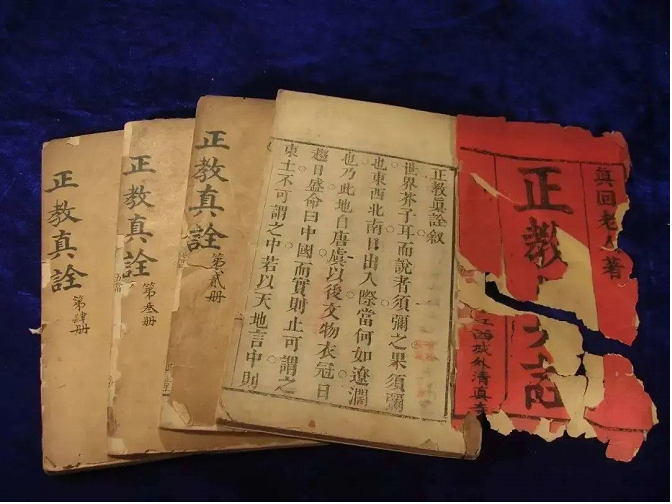 眞回老著
正教
西城外清真
正教眞詮叙
世界芥子耳而說者須彌之果須彌
也東西北南日出入際當何如遼濶
也乃此地自唐虞以後文物衣冠日
趨日盛命曰中國而實則止可謂之
東土不可謂之中若以天地言中則
正教真詮
第貳册
正教真詮
第叁册
正教真詮
第肆册